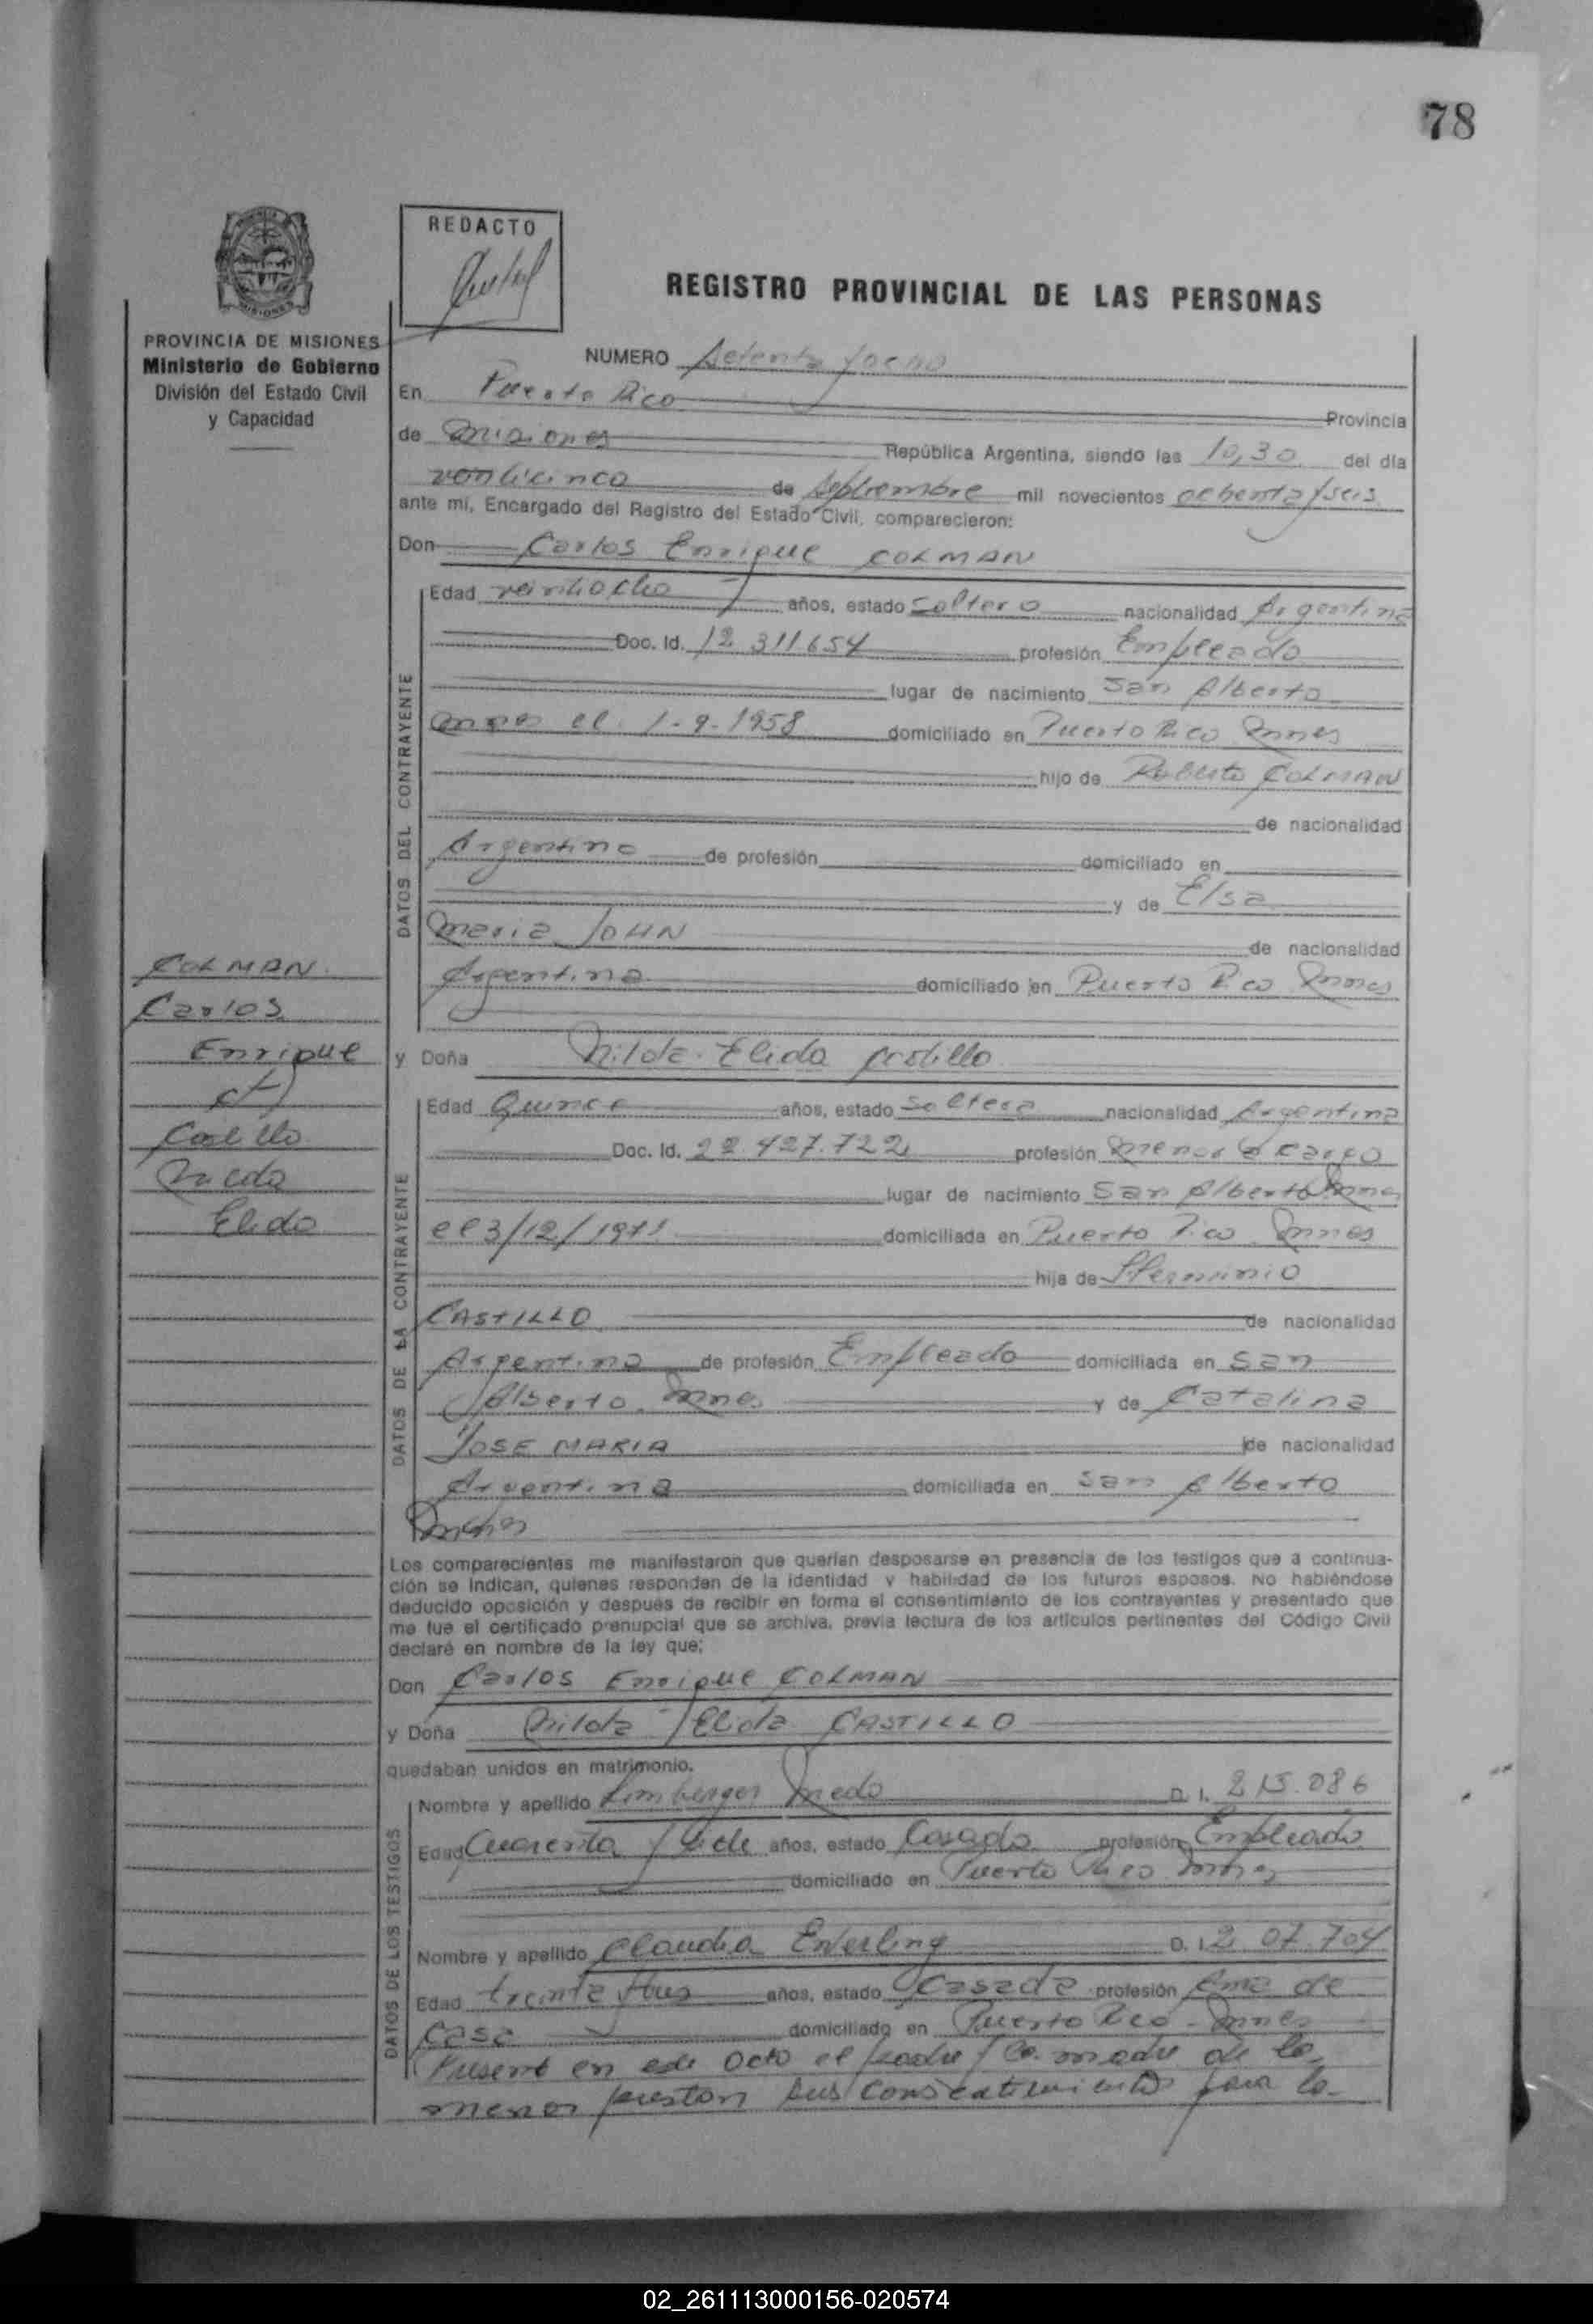 78
REDACTO
REGISTRO PROVINCIAL DE LAS PERSONAS
PROVINCIA DE MISIONES
Ministerio de Gobierno
División del Estado Civil
y Capacidad
NUMERO Setenta y ocho
En Puerto Rico Provincia
de Misiones República Argentina, siendo las 10,30 del día
veinticinco de Septiembre mil novecientos ochenta y seis
ante mí, Encargado del Registro del Estado Civil, comparecieron:
Don Carlos Enrique COLMAN
DATOS DEL CONTRAYENTE
Edad veintiocho años, estado Soltero nacionalidad Argentina
Doc. Id. 12.311.654 profesión Empleado
lugar de nacimiento San Alberto
Mnes el 1-9-1958 domiciliado en Puerto Rico Mnes
hijo de Roberto COLMAN
de nacionalidad
Argentino de profesión domiciliado en
y de Elsa
Maria JOHN de nacionalidad
Argentina domiciliado en Puerto Rico Mnes
COLMAN
Carlos
Enrique
c/
Castillo
Nilda
Elida
y Doña Nilda Elida Castillo
DATOS DE LA CONTRAYENTE
Edad Quince años, estado Soltera nacionalidad Argentina
Doc. Id. 22.427.722 profesión Menor a cargo
lugar de nacimiento San Alberto Mnes
el 3/12/1971 domiciliada en Puerto Rico Mnes
hija de Herminio
CASTILLO de nacionalidad
Argentina de profesión Empleado domiciliada en San
Alberto Mnes y de Catalina
JOSE MARIA de nacionalidad
Argentina domiciliada en San Alberto
Mnes
Los comparecientes me manifestaron que querían desposarse en presencia de los testigos que a continua-
ción se indican, quienes responden de la identidad y habilidad de los futuros esposos. No habiéndose
deducido oposición y después de recibir en forma el consentimiento de los contrayentes y presentado que
me fue el certificado prenupcial que se archiva, previa lectura de los artículos pertinentes del Código Civil
declaré en nombre de la ley que:
Don Carlos Enrique COLMAN
y Doña Nilda Elida CASTILLO
quedaban unidos en matrimonio.
DATOS DE LOS TESTIGOS
Nombre y apellido Limberger D. I.
Edad Cuarenta y siete años, estado Casado profesión Empleado
domiciliado en Puerto Rico Mnes
Nombre y apellido Claudia Enerling D. I.
Edad treinta y tres años, estado Casada profesión Ama de
casa domiciliado en Puerto Rico - Mnes
Presente en este acto el padre y la madre de la
menor prestan sus consentimientos para la
02_261113000156-020574